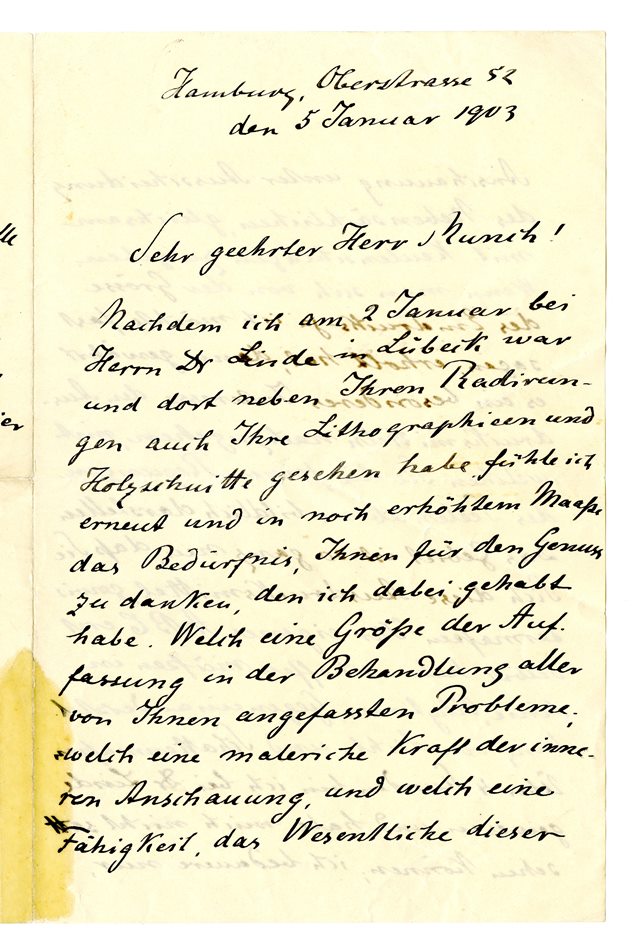 Hamburg, Oberstrasse 52
den 5 Januar 1903
Sehr geehrter Herr Munch!
Nachdem ich am 2 Januar bei
Herrn Dr Linde in Lübeck war
und dort neben Ihren Radirun-
gen auch Ihre Lithographieen und
Holzschnitte gesehen habe, fühle ich
erneut und in noch erhöhtem Maaße
das Bedürfnis, Ihnen für den Genuss
zu danken, den ich dabei gehabt
habe. Welch eine Größe der Auf-
fassung in der Behandlung aller
von Ihnen angefassten Probleme,
welch eine malerische Kraft der inne-
ren Anschauung, und welch eine
Fähigkeit, das Wesentliche dieser